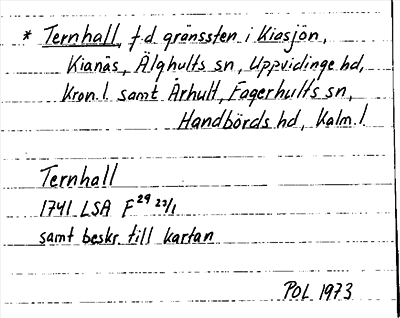 * Ternhall, f.d. gränssten i Kiasjön,
Kianäs, Älghults sn, Uppvidinge hd,
Kron. l. samt Århult, Fagerhults sn,
Handbörds hd, Kalm. l.
Ternhall
1741 LSA F 29 22/1
samt beskr. till kartan
POL 1973